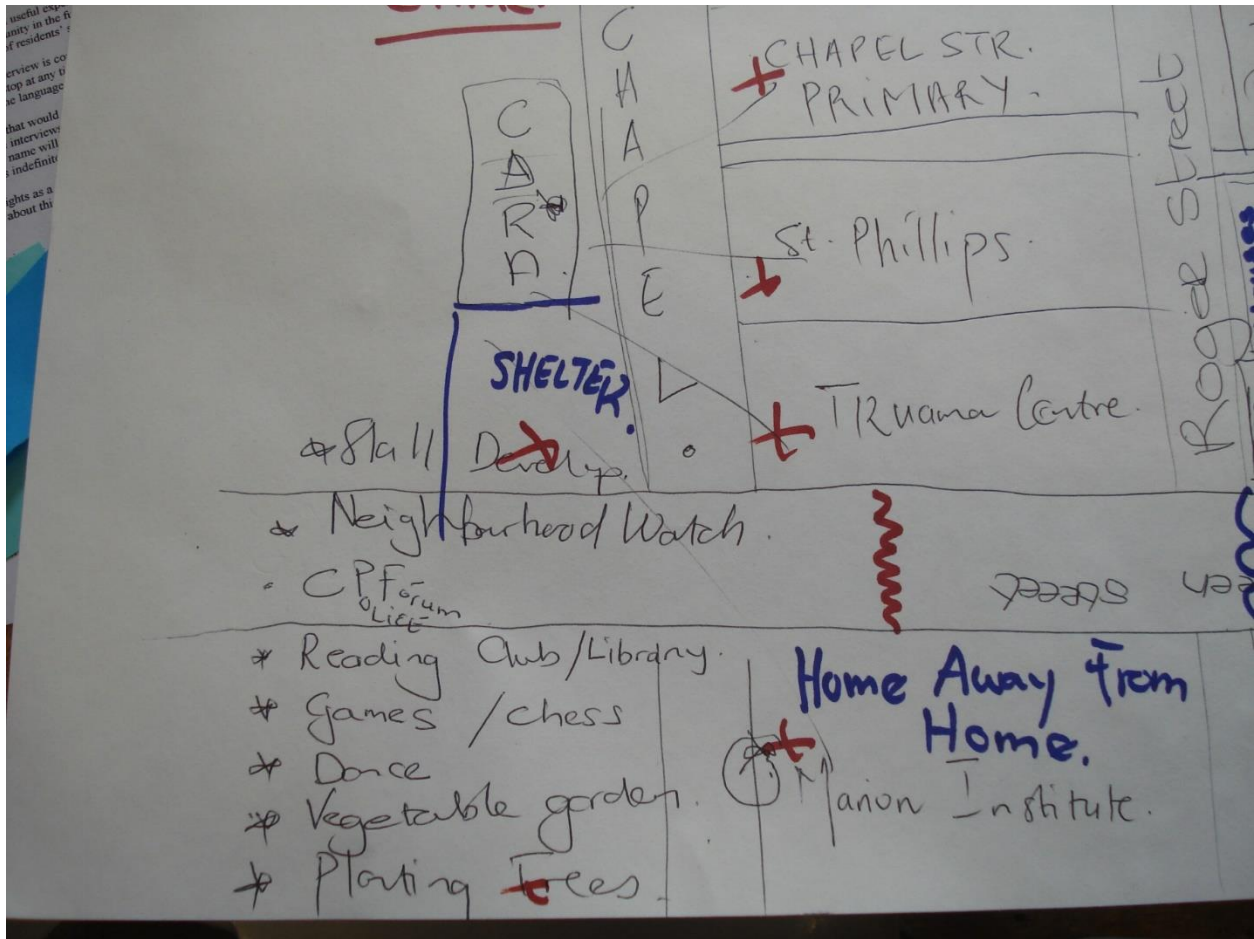 useful
unity in the
of residents'
erview is co
top at any
language
that would
interview
name will
indefinit
ghts as a
about thi
CHAPE
CHAPEL STR.
PRIMARY.
St. Phillips.
TRuama Centre.
Street
SHELTER.
* Skall Develyp.
* Neighbourhood Watch.
· CPForum
OLICE
Street
* Reading Club/Library.
* Games / chess
* Dance
* Vegetable garden.
* Planting Trees.
Home Away From
Home.
Manon Institute.